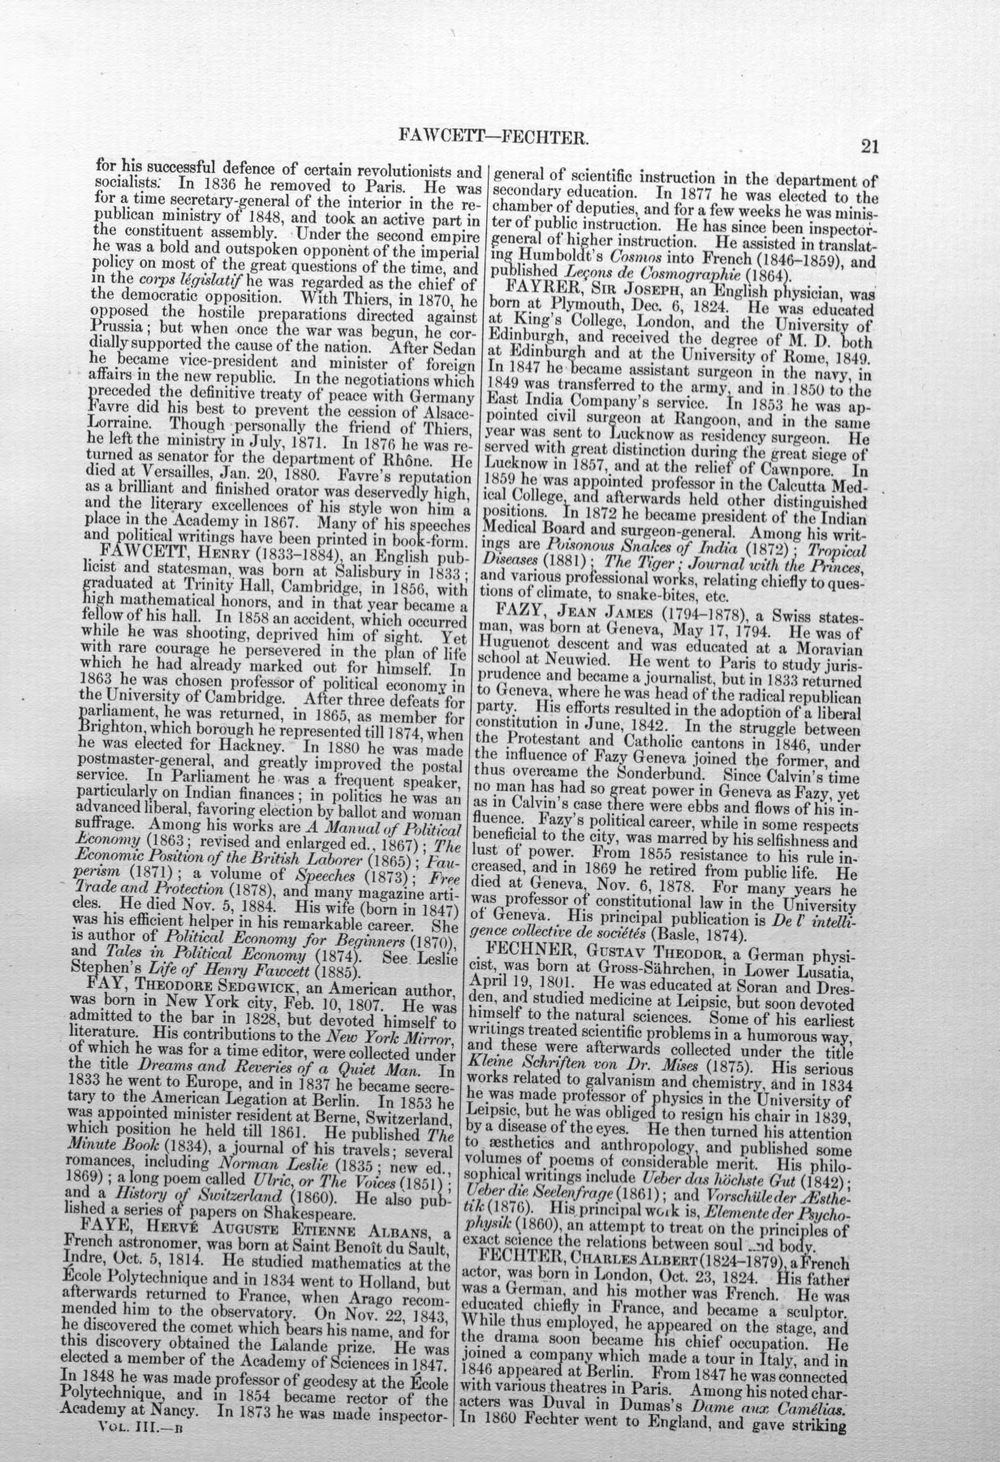 FAWCETT—FECHTER.
21
for his successful defence of certain revolutionists and
socialists. In 1836 he removed to Paris. He was
for a time secretary-general of the interior in the re-
publican ministry of 1848, and took an active part in
the constituent assembly. Under the second empire
he was a bold and outspoken opponent of the imperial
policy on most of the great questions of the time, and
in the corps législatif he was regarded as the chief of
the democratic opposition. With Thiers, in 1870, he
opposed the hostile preparations directed against
Prussia; but when once the war was begun, he cor-
dially supported the cause of the nation. After Sedan
he became vice-president and minister of foreign
affairs in the new republic. In the negotiations which
preceded the definitive treaty of peace with Germany
Favre did his best to prevent the cession of Alsace-
Lorraine. Though personally the friend of Thiers,
he left the ministry in July, 1871. In 1876 he was re-
turned as senator for the department of Rhône. He
died at Versailles, Jan. 20, 1880. Favre's reputation
as a brilliant and finished orator was deservedly high,
and the literary excellences of his style won him a
place in the Academy in 1867. Many of his speeches
and political writings have been printed in book-form.
FAWCETT, HENRY (1833–1884), an English pub-
licist and statesman, was born at Salisbury in 1833;
graduated at Trinity Hall, Cambridge, in 1856, with
high mathematical honors, and in that year became a
fellow of his hall. In 1858 an accident, which occurred
while he was shooting, deprived him of sight. Yet
with rare courage he persevered in the plan of life
which he had already marked out for himself. In
1863 he was chosen professor of political economy in
the University of Cambridge. After three defeats for
parliament, he was returned, in 1865, as member for
Brighton, which borough he represented till 1874, when
he was elected for Hackney. In 1880 he was made
postmaster-general, and greatly improved the postal
service. In Parliament he was a frequent speaker,
particularly on Indian finances; in politics he was an
advanced liberal, favoring election by ballot and woman
suffrage. Among his works are A Manual of Political
Economy (1863; revised and enlarged ed., 1867); The
Economic Position of the British Laborer (1865); Pau-
perism (1871); a volume of Speeches (1873); Free
Trade and Protection (1878), and many magazine arti-
cles. He died Nov. 5, 1884. His wife (born in 1847)
was his efficient helper in his remarkable career. She
is author of Political Economy for Beginners (1870),
and Tales in Political Economy (1874). See Leslie
Stephen's Life of Henry Fawcett (1885).
FAY, THEODORE SEDGWICK, an American author,
was born in New York city, Feb. 10, 1807. He was
admitted to the bar in 1828, but devoted himself to
literature. His contributions to the New York Mirror,
of which he was for a time editor, were collected under
the title Dreams and Reveries of a Quiet Man. In
1833 he went to Europe, and in 1837 he became secre-
tary to the American Legation at Berlin. In 1853 he
was appointed minister resident at Berne, Switzerland,
which position he held till 1861. He published The
Minute Book (1834), a journal of his travels; several
romances, including Norman Leslie (1835; new ed.,
1869); a long poem called Ulric, or The Voices (1851);
and a History of Switzerland (1860). He also pub-
lished a series of papers on Shakespeare.
FAYE, HERVÉ AUGUSTE ETIENNE ALBANS, a
French astronomer, was born at Saint Benoît du Sault,
Indre, Oct. 5, 1814. He studied mathematics at the
École Polytechnique and in 1834 went to Holland, but
afterwards returned to France, when Arago recom-
mended him to the observatory. On Nov. 22, 1843,
he discovered the comet which bears his name, and for
this discovery obtained the Lalande prize. He was
elected a member of the Academy of Sciences in 1847.
In 1848 he was made professor of geodesy at the École
Polytechnique, and in 1854 became rector of the
Academy at Nancy. In 1873 he was made inspector-
VOL. III.—B
general of scientific instruction in the department of
secondary education. In 1877 he was elected to the
chamber of deputies, and for a few weeks he was minis-
ter of public instruction. He has since been inspector-
general of higher instruction. He assisted in translat-
ing Humboldt's Cosmos into French (1846–1859), and
published Leçons de Cosmographie (1864).
FAYRER, SIR JOSEPH, an English physician, was
born at Plymouth, Dec. 6, 1824. He was educated
at King's College, London, and the University of
Edinburgh, and received the degree of M. D. both
at Edinburgh and at the University of Rome, 1849.
In 1847 he became assistant surgeon in the navy, in
1849 was transferred to the army, and in 1850 to the
East India Company's service. In 1853 he was ap-
pointed civil surgeon at Rangoon, and in the same
year was sent to Lucknow as residency surgeon. He
served with great distinction during the great siege of
Lucknow in 1857, and at the relief of Cawnpore. In
1859 he was appointed professor in the Calcutta Med-
ical College, and afterwards held other distinguished
positions. In 1872 he became president of the Indian
Medical Board and surgeon-general. Among his writ-
ings are Poisonous Snakes of India (1872); Tropical
Diseases (1881); The Tiger; Journal with the Princes,
and various professional works, relating chiefly to ques-
tions of climate, to snake-bites, etc.
FAZY, JEAN JAMES (1794–1878), a Swiss states-
man, was born at Geneva, May 17, 1794. He was of
Huguenot descent and was educated at a Moravian
school at Neuwied. He went to Paris to study juris-
prudence and became a journalist, but in 1833 returned
to Geneva, where he was head of the radical republican
party. His efforts resulted in the adoption of a liberal
constitution in June, 1842. In the struggle between
the Protestant and Catholic cantons in 1846, under
the influence of Fazy Geneva joined the former, and
thus overcame the Sonderbund. Since Calvin's time
no man has had so great power in Geneva as Fazy, yet
as in Calvin's case there were ebbs and flows of his in-
fluence. Fazy's political career, while in some respects
beneficial to the city, was marred by his selfishness and
lust of power. From 1855 resistance to his rule in-
creased, and in 1869 he retired from public life. He
died at Geneva, Nov. 6, 1878. For many years he
was professor of constitutional law in the University
of Geneva. His principal publication is De l' intelli-
gence collective de sociétés (Basle, 1874).
FECHNER, GUSTAV THEODOR, a German physi-
cist, was born at Gross-Sährchen, in Lower Lusatia,
April 19, 1801. He was educated at Soran and Dres-
den, and studied medicine at Leipsic, but soon devoted
himself to the natural sciences. Some of his earliest
writings treated scientific problems in a humorous way,
and these were afterwards collected under the title
Kleine Schriften von Dr. Mises (1875). His serious
works related to galvanism and chemistry, and in 1834
he was made professor of physics in the University of
Leipsic, but he was obliged to resign his chair in 1839,
by a disease of the eyes. He then turned his attention
to æsthetics and anthropology, and published some
volumes of poems of considerable merit. His philo-
sophical writings include Ueber das höchste Gut (1842);
Ueber die Seelenfrage (1861); and Vorschüle der Æsthe-
tik (1876). His principal work is, Elemente der Psycho-
physik (1860), an attempt to treat on the principles of
exact science the relations between soul and body.
FECHTER, CHARLES ALBERT (1824–1879), a French
actor, was born in London, Oct. 23, 1824. His father
was a German, and his mother was French. He was
educated chiefly in France, and became a sculptor.
While thus employed, he appeared on the stage, and
the drama soon became his chief occupation. He
joined a company which made a tour in Italy, and in
1846 appeared at Berlin. From 1847 he was connected
with various theatres in Paris. Among his noted char-
acters was Duval in Dumas's Dame aux Camélias.
In 1860 Fechter went to England, and gave striking